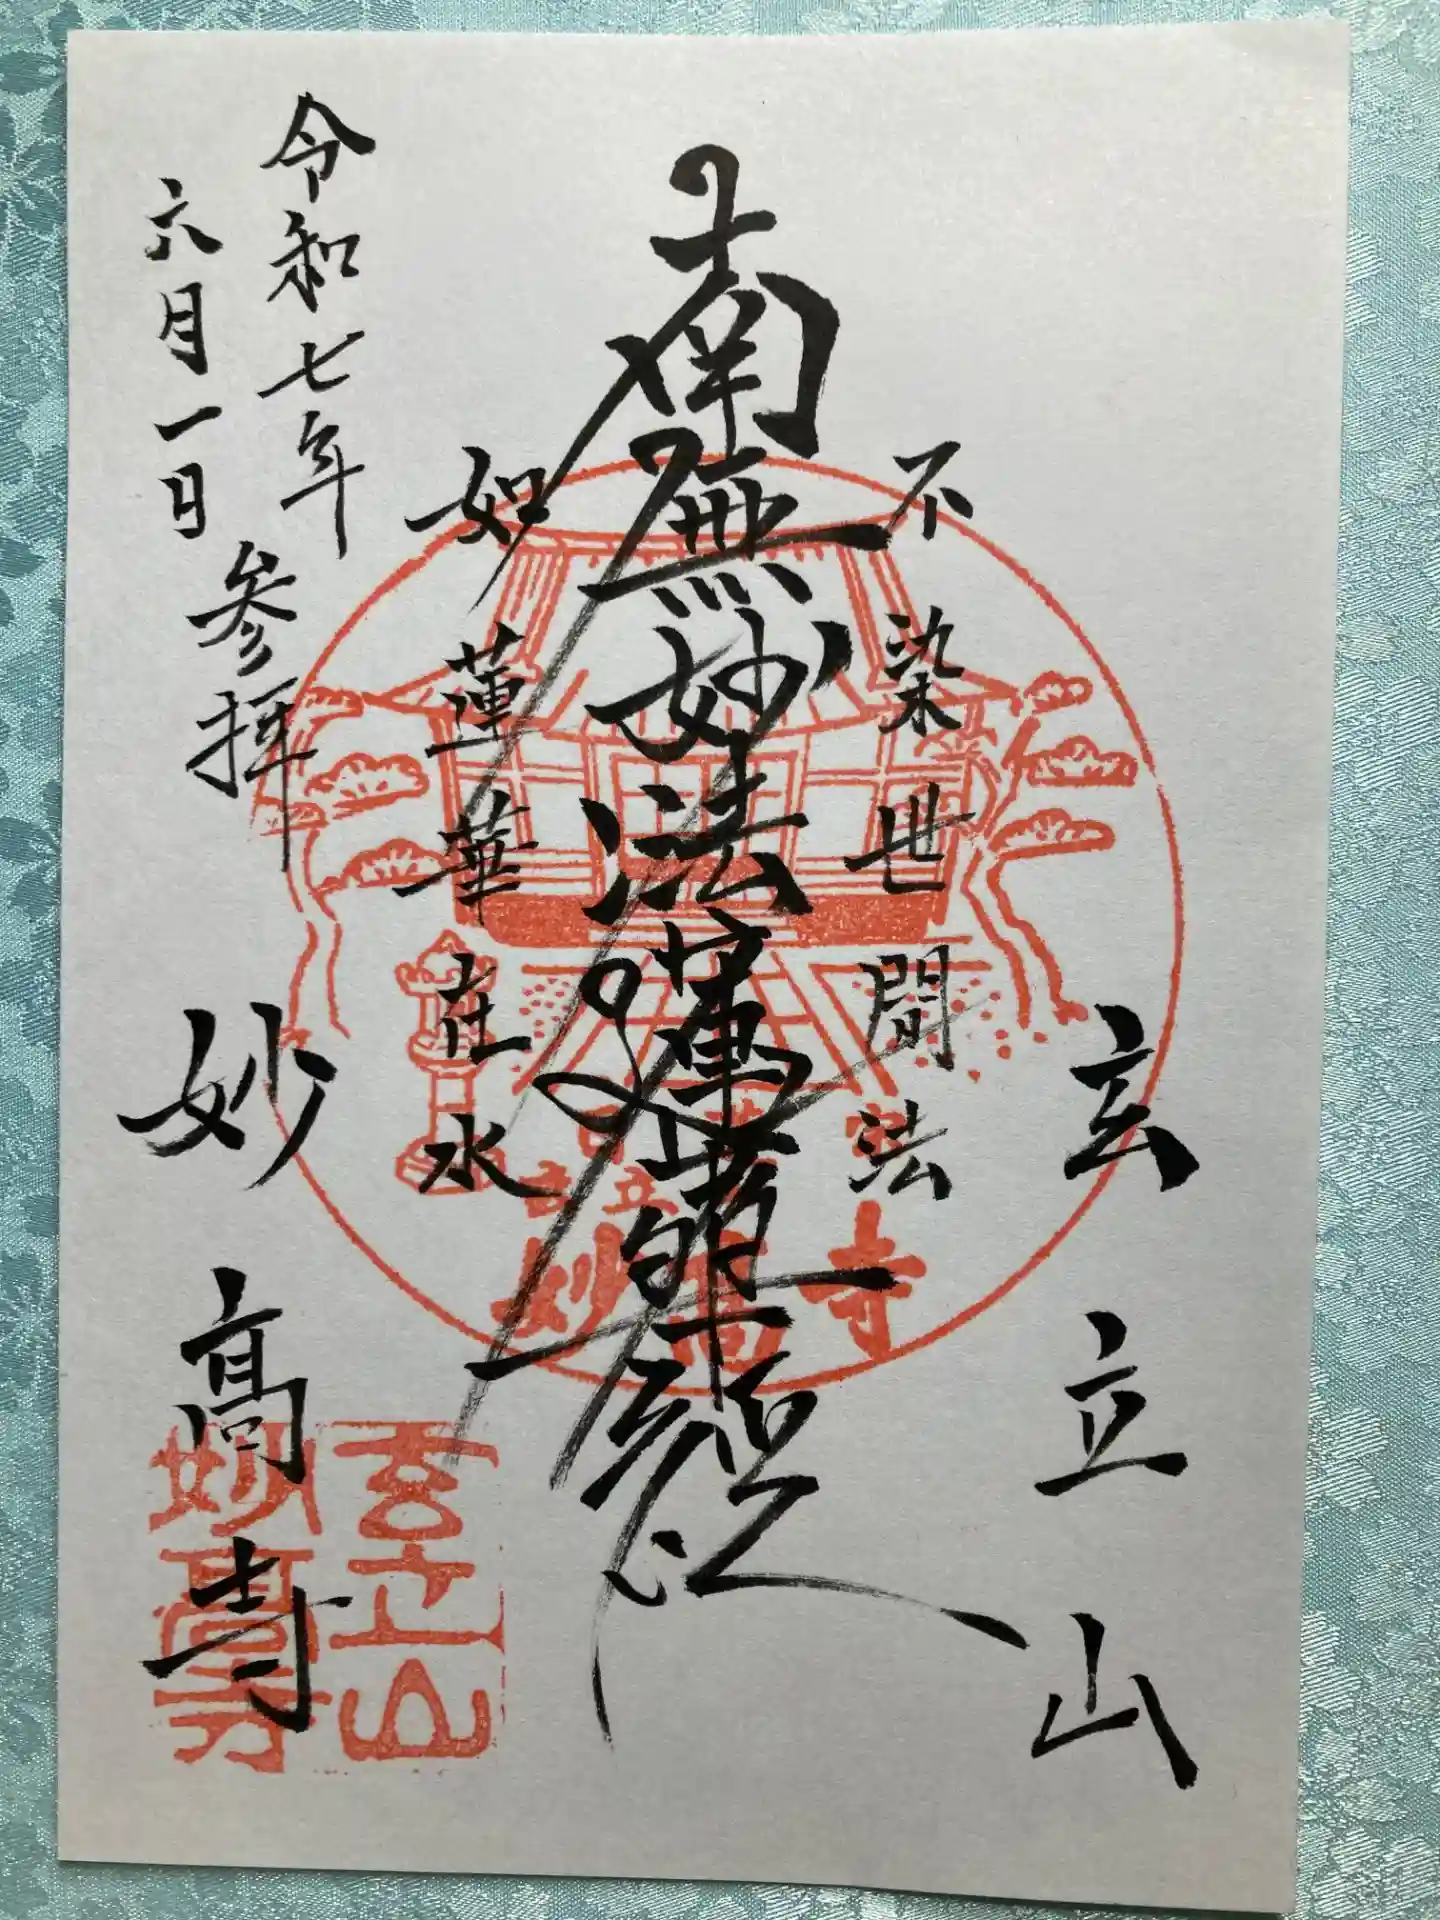 玄立山
不染世間法
南無妙法蓮華経
如蓮華在水
令和七年
六月一日
参拝
妙高寺
妙高寺
玄立山
妙高寺